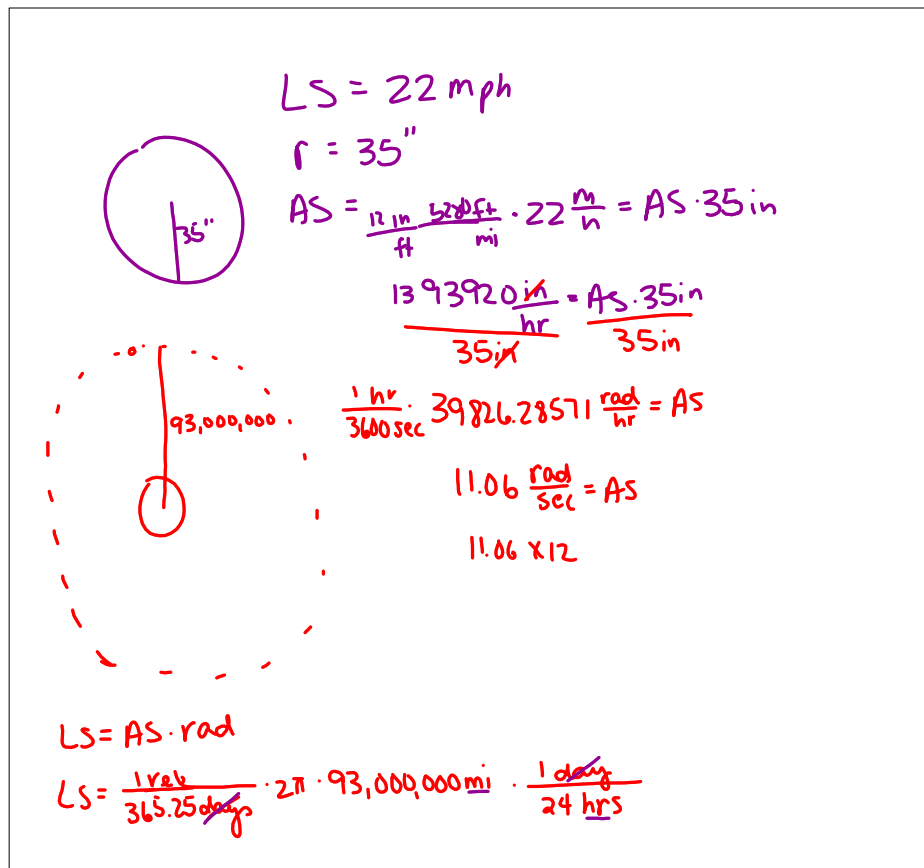 LS = 22 mph
r = 35"
35"
AS = 12 in/ft 5280ft/mi · 22 m/h = AS · 35 in
1393920 in/hr = AS · 35in
35in 35in
93,000,000
1 hr/3600 sec · 39826.28571 rad/hr = AS
11.06 rad/sec = AS
11.06 x 12
LS = AS · rad
LS = 1 rev/365.25 days · 2π · 93,000,000 mi · 1 day/24 hrs